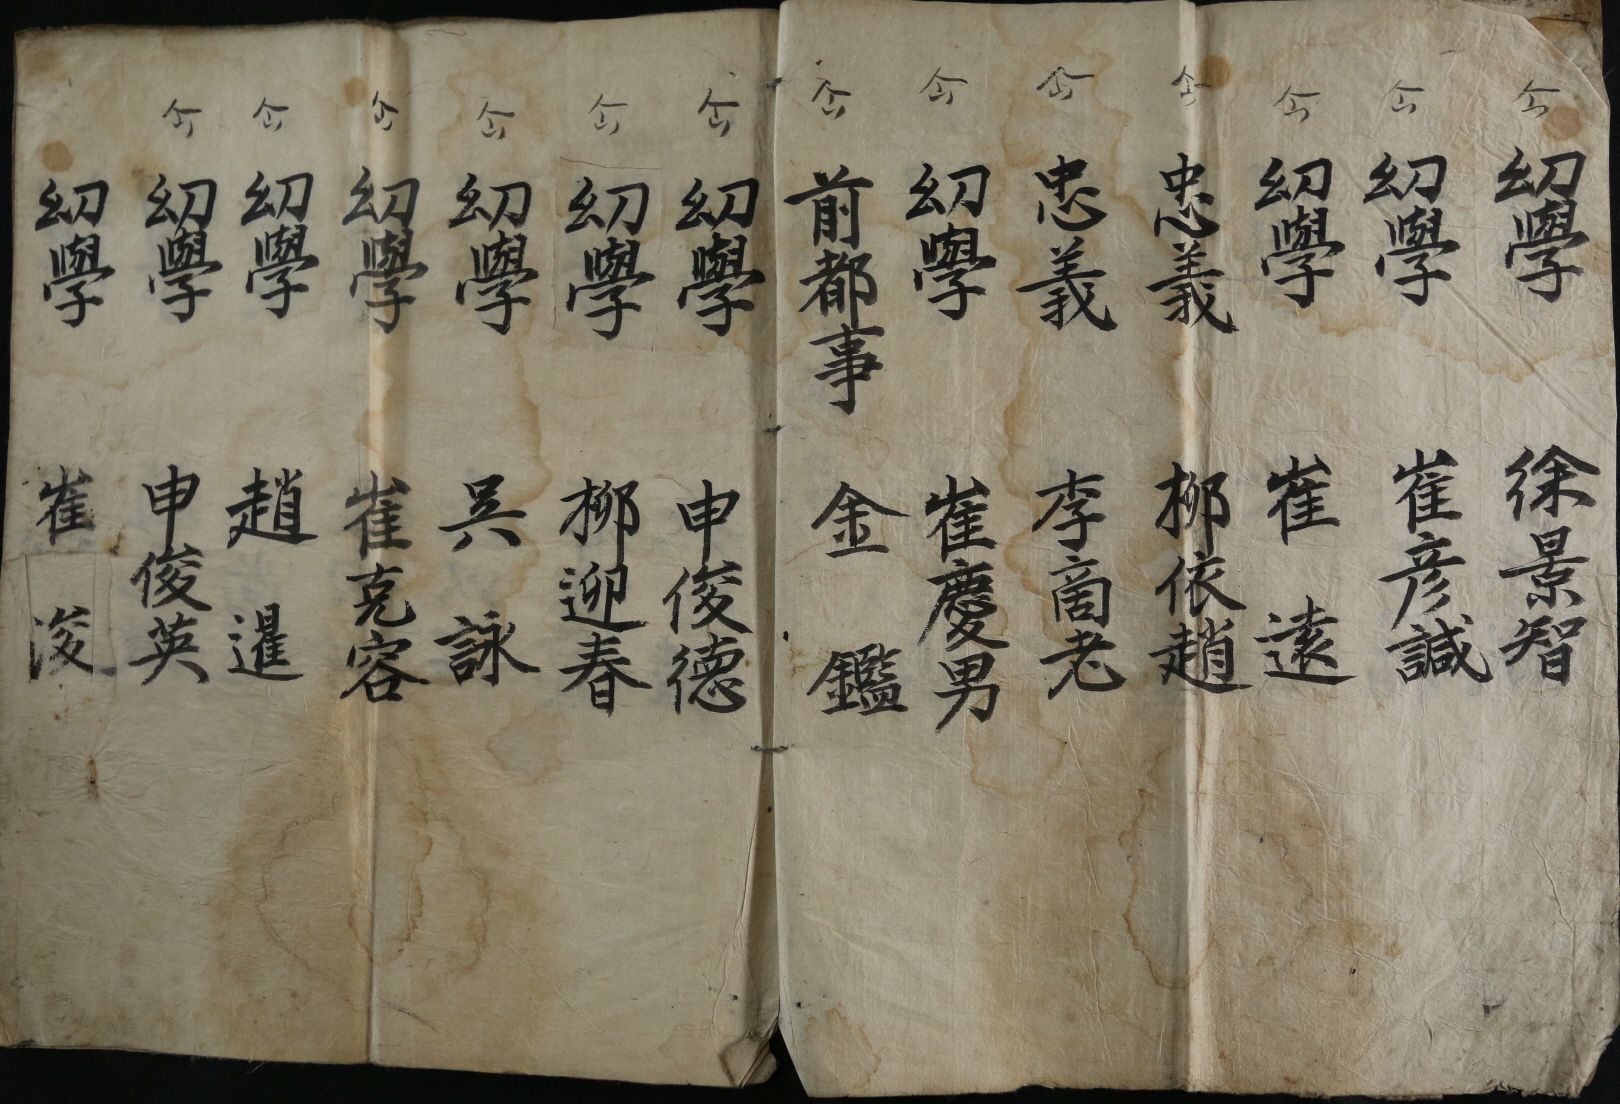 幼學 徐景智
幼學 崔彦諴
幼學 崔遠
忠義 柳依趙
忠義 李商老
幼學 崔慶男
前都事 金鑑
幼學 申俊德
幼學 柳迎春
幼學 吳詠
幼學 崔克容
幼學 趙暹
幼學 申俊英
幼學 崔浚